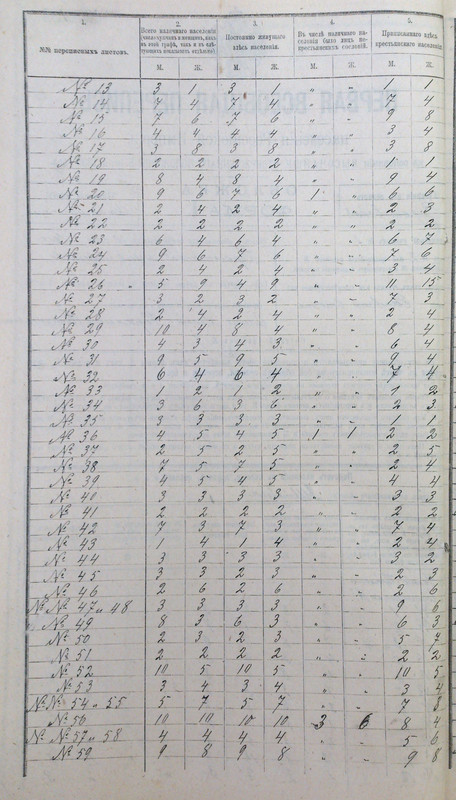 1. 2. 3. 4. 5.
№№ переписныхъ листовъ. Всего наличнаго населенія Постоянно живущаго здѣсь населенія. Въ числѣ наличнаго населенія было лицъ некрестьянскихъ сословій. Приписаннаго здѣсь крестьянскаго населенія.
М. Ж. М. Ж. М. Ж. М. Ж.
№ 13 3 1 3 1 „ 1 1
№ 14 7 4 7 4 „ „ 7 4
№ 15 7 6 7 6 „ „ 9 8
№ 16 4 4 4 4 „ „ 3 4
№ 17 3 8 3 8 „ „ 3 8
№ 18 2 2 2 2 „ „ 1 1
№ 19 8 4 8 4 „ „ 9 4
№ 20 9 6 7 6 1 „ 6 6
№ 21 2 4 2 4 „ „ 2 3
№ 22 2 2 2 2 „ „ 2 2
№ 23 6 4 6 4 „ „ 6 7
№ 24 9 6 7 6 „ „ 7 6
№ 25 2 4 2 4 „ „ 3 4
№ 26 5 9 4 9 „ „ 11 15
№ 27 3 2 3 2 „ „ 7 3
№ 28 2 4 2 4 „ „ 2 4
№ 29 10 4 8 4 „ „ 8 4
№ 30 4 3 4 3 „ „ 6 4
№ 31 9 5 9 5 „ „ 9 4
№ 32 6 4 6 4 „ „ 7 4
№ 33 1 2 1 2 „ „ 1 2
№ 34 3 6 3 6 „ „ 2 3
№ 35 3 3 3 3 „ „ 1 1
№ 36 4 5 4 5 1 1 2 2
№ 37 2 5 2 5 „ „ 2 5
№ 38 7 5 7 5 „ „ 2 4
№ 39 4 5 4 5 „ „ 4 4
№ 40 3 3 3 3 „ „ 3 3
№ 41 2 2 2 2 „ „ 2 2
№ 42 7 3 7 3 „ „ 7 4
№ 43 1 4 1 4 „ „ 2 4
№ 44 3 3 3 3 „ „ 3 2
№ 45 3 3 2 3 „ „ 2 3
№ 46 2 6 2 6 „ „ 2 6
№№ 47 и 48 3 3 3 3 „ „ 9 6
№ 49 8 3 6 3 „ „ 6 3
№ 50 2 3 2 3 „ „ 5 7
№ 51 2 2 2 2 „ „ 2 2
№ 52 10 5 10 5 „ „ 10 5
№ 53 3 4 3 4 „ „ 3 4
№№ 54 и 55 5 7 5 7 „ „ 7 8
№ 56 10 10 10 10 3 6 8 4
№№ 57 и 58 4 4 4 4 „ „ 5 6
№ 59 9 8 9 8 „ „ 9 8